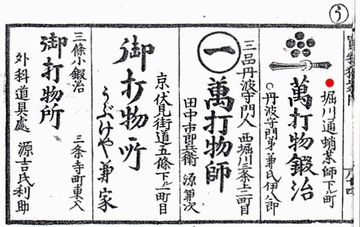 堀川通蛸薬師下ル町
萬打物鍛冶
三品丹波守門人
西堀川三条上二町目
一
萬打物師
田中市郎兵衛 源兼次
京伏見街道五條下ル一町目
御打物所
うぶけや兼家
三條小鍛冶
三条寺町東入
御打物所
外科道具處
源吉氏利助